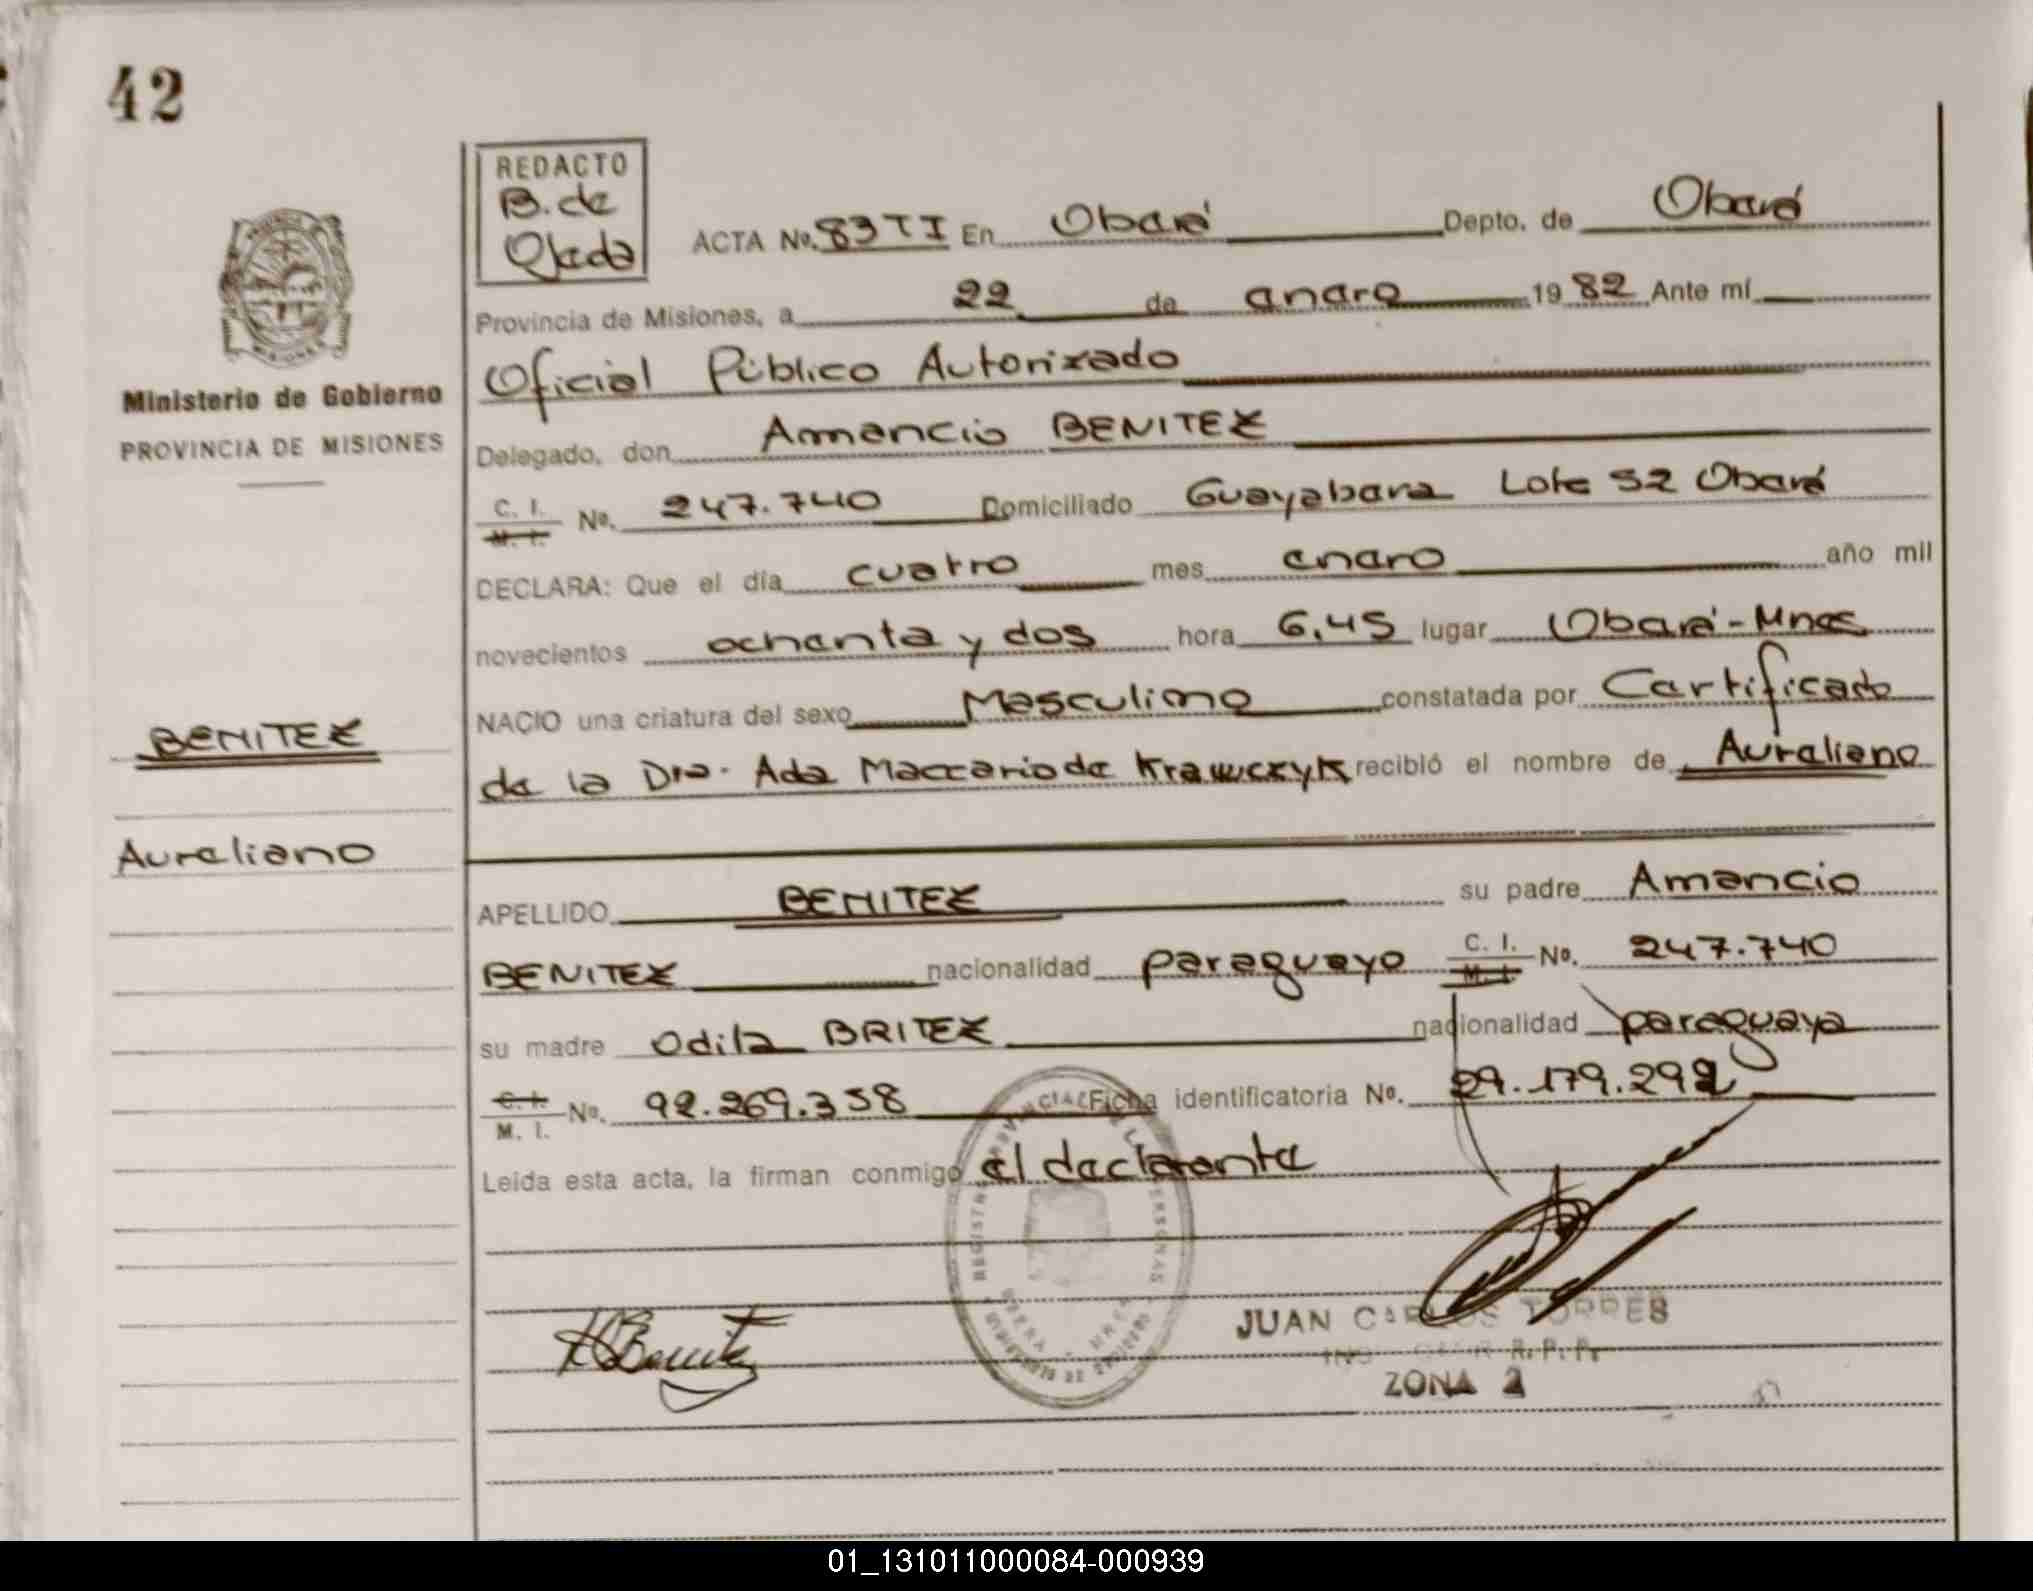 42
REDACTO
B. de
Ojeda
ACTA No. 83 T I En Oberá Depto. de Oberá
Provincia de Misiones, a 22 de enero 1982 Ante mí
Oficial Público Autorizado
Ministerio de Gobierno
PROVINCIA DE MISIONES
Delegado, don Amancio BENITEZ
C. I. M. I. No. 247.740 Domiciliado Guayabera Lote 52 Oberá
DECLARA: Que el día cuatro mes enero año mil
novecientos ochenta y dos hora 6,45 lugar Oberá-Mnes
NACIO una criatura del sexo Masculino constatada por Certificado
de la Dra. Ada Maccario de Krawczyk recibió el nombre de Aureliano
BENITEZ
Aureliano
APELLIDO BENITEZ su padre Amancio
BENITEZ nacionalidad paraguayo C. I. M. I. No. 247.740
su madre Odila BRITEZ nacionalidad paraguaya
C. I. M. I. No. 92.269.358 Ficha identificatoria No. 29.179.292
Leida esta acta, la firman conmigo el declarante
REGISTRO PROVINCIAL DE LAS PERSONAS
Benitez
JUAN CARLOS TORRES
R. P. P.
ZONA 2
01_131011000084-000939